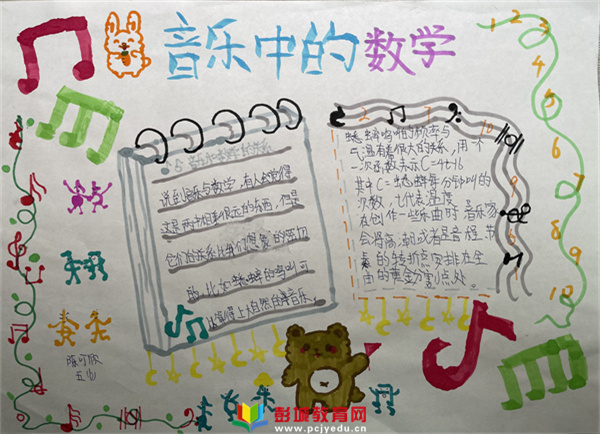 音乐中的数学
音乐和数学的关系
说到音乐与数学，有人会觉得
这是两个相差很远的东西，但是
它们的关系比我们想象的密切
。比如蟋蟀的鸣叫可
以算得上大自然的音乐。
蟋蟀鸣叫的频率与
气温有着很大的关系，用一个
一次函数表示C=4t-16
其中C=蟋蟀每分钟叫的
次数，t代表温度
在创作一些乐曲时音乐家
会将高潮或者是音程、节
奏的转折点安排在全
曲的黄金分割点处。
1 2 3
4
5
6
7
8
9
10
五(1)
彭城教育网
www.pcjyedu.cn